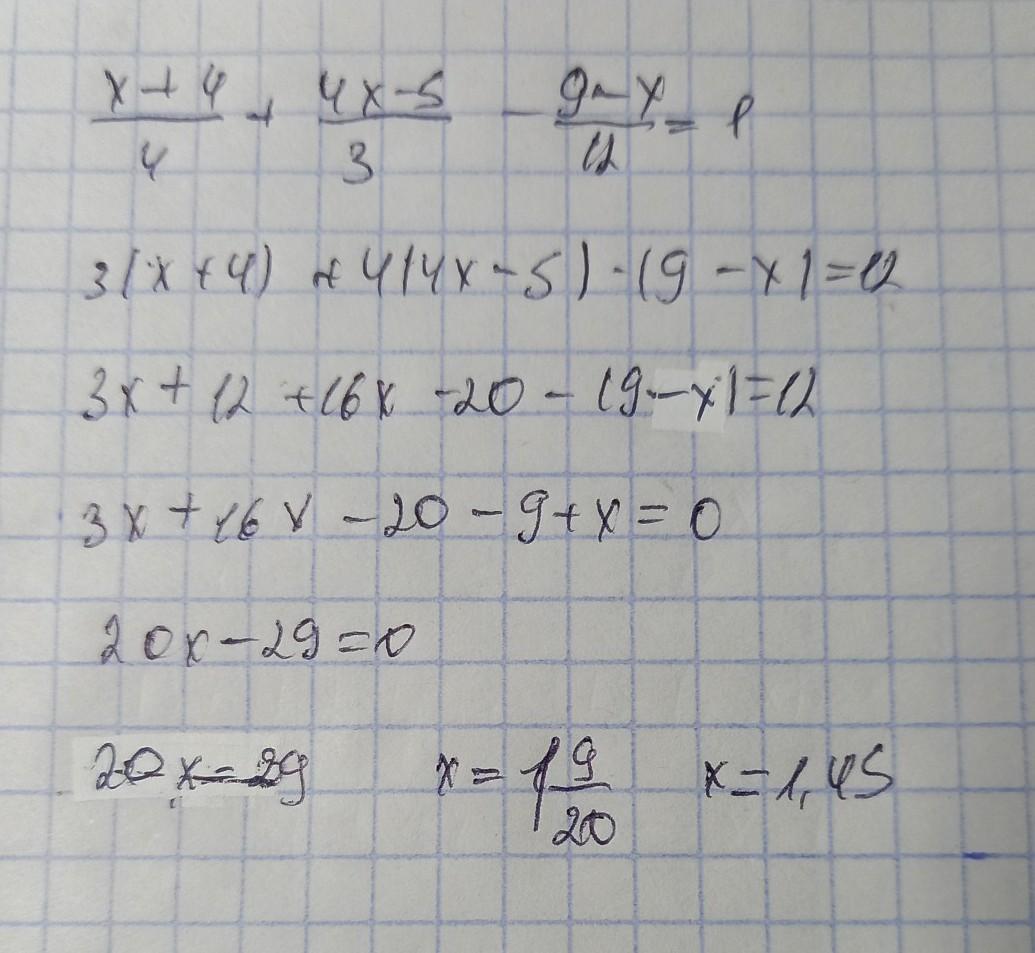 (x+4)/4 + (4x-5)/3 - (9-x)/12 = 1
3(x+4) + 4(4x-5) - (9-x) = 12
3x + 12 + 16x - 20 - (9-x) = 12
3x + 16x - 20 - 9 + x = 0
20x - 29 = 0
20x = 29 x = 1 9/20 x = 1,45